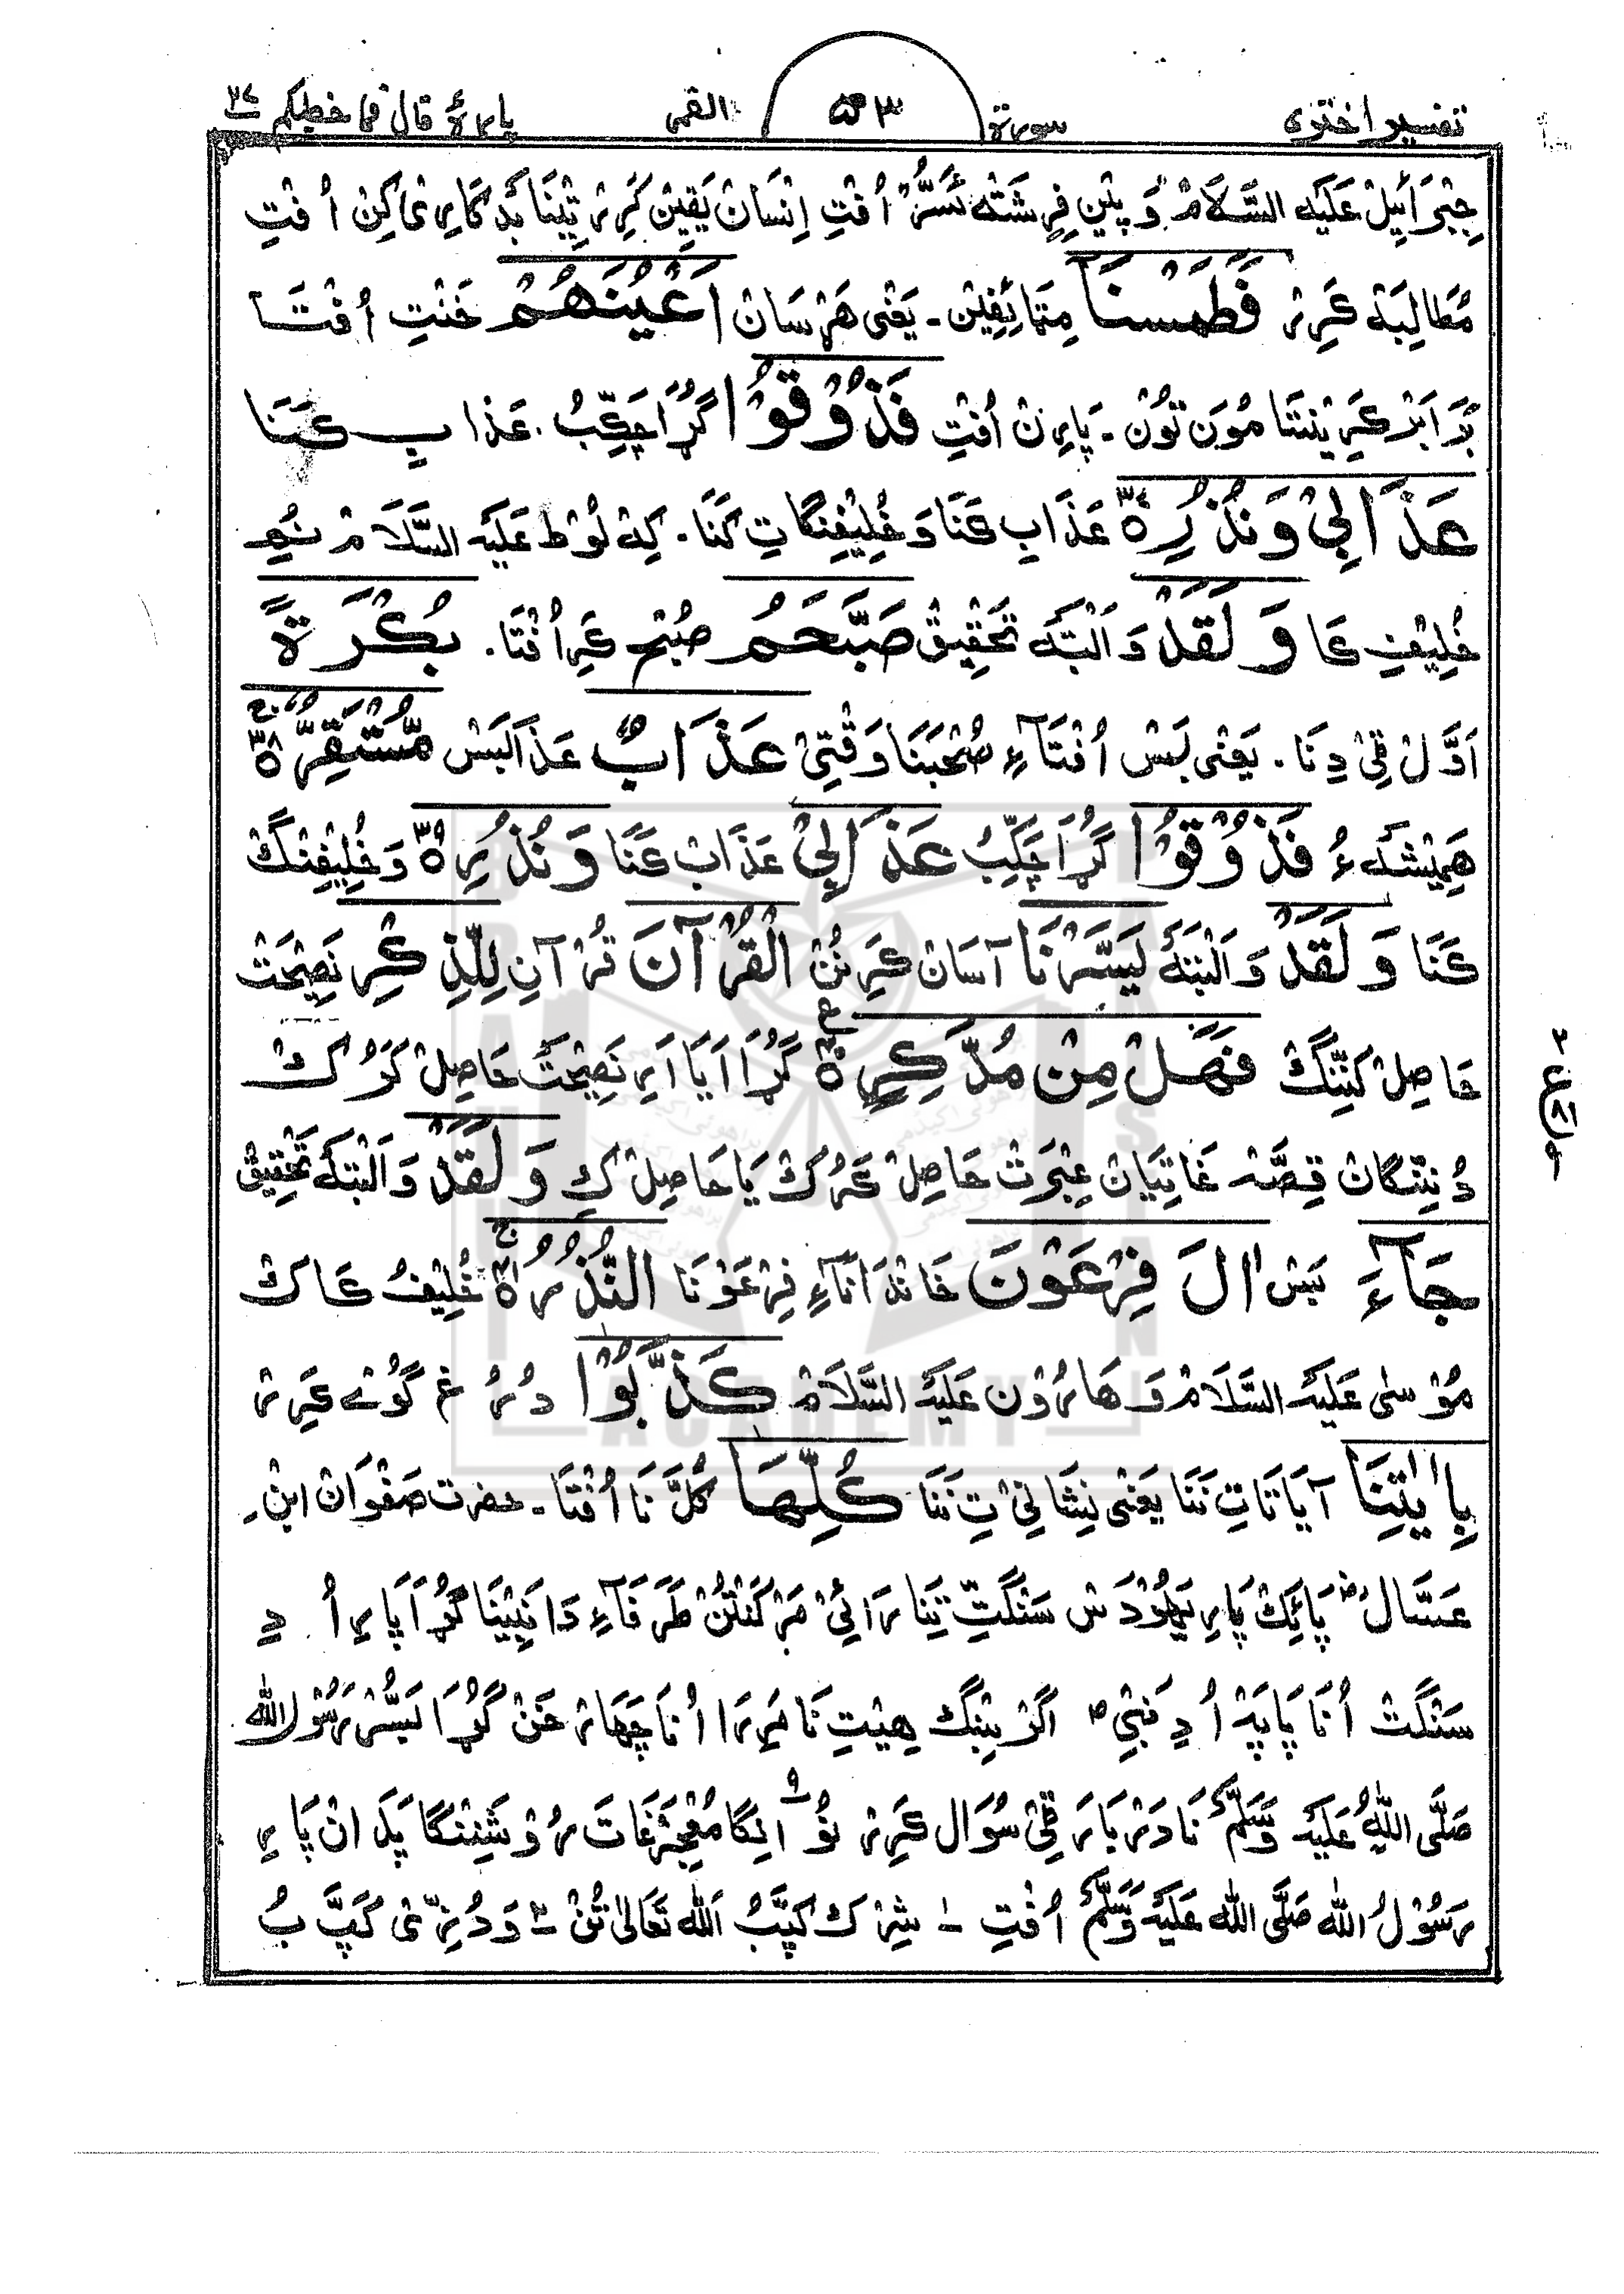 تفسیر اختری سورة ۵۳ القمر پارۂ قال فما خطبکم ۲۷
جِبْرَائِیْل عَلَیْهِ السَّلَامْ وَ پِیْنِ فِرِشْتَه نَسُّرْ اُفْتِ اِنْسَانْ یَقِیْن کَرِیْرْ تِیْنَا بَدْ کَارِیْ کِنْ اُفْتِ
مُطَالِبَهْ کَرِیْرْ فَطَمَسْنَا مِتَائِفِیْن ۔ یَعْنِی هَرْسَانْ اَعْیُنَهُمْ خَنْتِ اُفْتَا
بَرَابَرْ کَرِیْنِتَا مُوَن تُوْن ۔ پَارِنْ اُفْتِ فَذُوْقُوْا گُڑَا چَکِّبُ . عَذَابِ کَنَا
عَذَابِیْ وَنُذُرِ ۝۳۷ عَذَابِ کَنَا وَ خُلِیْفِنْگَاتِ کَنَا . کِهْ لُوْط عَلَیْهِ السَّلَامْ نُمِ
خُلِیْفِ کَا وَلَقَدْ وَ اَلْبَتَّه تَحْقِیْقْ صَبَّحَهُمْ صُبْح کَرِ اُفْتَا . بُكْرَةً
اَوَّلْ ٹِیْ دِنَا . یَعْنِی بَسْ اُفْتَآءِ صُحْبَنَا وَقْتِیْ عَذَابٌ عَذَابَسْ مُّسْتَقِرٌّ ۝۳۸
هَمِیْشَه ءُ فَذُوْقُوْا گُڑَا چَکِّبُ عَذَابِیْ عَذَابْ کَنَا وَنُذُرِ ۝۳۹ وَ خُلِیْفِنْگ
کَنَا وَلَقَدْ وَ اَلْبَتَه یَسَّرْنَا آسَانْ کَرِنُنْ الْقُرْآنَ قُرْآنِ لِلذِّكْرِ نَصِیْحَتْ
حَاصِلْ کَنِّنْگ فَهَلْ مِنْ مُدَّكِرٍ ۝۴۰ گُڑَا اَیَا اَرِ نَصِیْحَتْ حَاصِلْ کَرُکْ
دُنِّنْگَانْ قِصَّه غَاتِیَانْ عِبْرَتْ حَاصِلْ کَرُکْ یَا حَاصِلْ کِ وَلَقَدْ وَ اَلْبَتَه تَحْقِیْقْ
جَآءَ بَسْ اٰلَ فِرْعَوْنَ خَانْدَانَآءِ فِرْعَوْنَا النُّذُرُ ۝۴۱ خُلِیْفُ کَاکْ
مُوْسٰی عَلَیْهِ السَّلَامْ وَ هَارُوْن عَلَیْهِ السَّلَامْ كَذَّبُوْا دُرُغ گُوْئے کَرِیْرْ
بِاٰیٰتِنَا آیَاتَاتِ نَنَا یَعْنِی نِشَانِیْ تِ نَنَا كُلِّهَا کُلَّ نَا اُفْتَا ۔ حضرت صَفْوَانْ ابْنِ
عَسَّالْ رض پَائِکْ پَارِ یَهُوْدَسْ سَنْگَتِّ تِنَا رَائِیْ مَرْ کَنْتُنْ طَرَفَآءِ دَا نَبِیْنَا گُڑَا پَارِ اُ دِ
سَنْگَتْ اُنَا پَاپَهْ اُدِ نَبِیْ ص اَگَرْ بِنِنْگ هِیْتِ نَا مَرَا اُنَا چَهَارْ خَنْ گُڑَا بَسُّرْ رَسُوْلُ اللّٰه
صَلَّی اللّٰهُ عَلَیْهِ وَسَلَّمَ نَا دَرْبَارَ ٹِیْ سُوَال کَرِیْرْ نُوْ ۹ اَنْگَا مُعْجِزَغَاتَ رُوْشَنِنْگَا پَدَ انْ پَارِ
رَسُوْلُ اللّٰه صَلَّی اللّٰه عَلَیْهِ وَسَلَّمَ اُفْتِ ۱ شِرْکْ کَپَّبُ اَللّٰه تَعَالٰی تُنْ ۲ وَ دُزِّیْ کَپَّ بُ